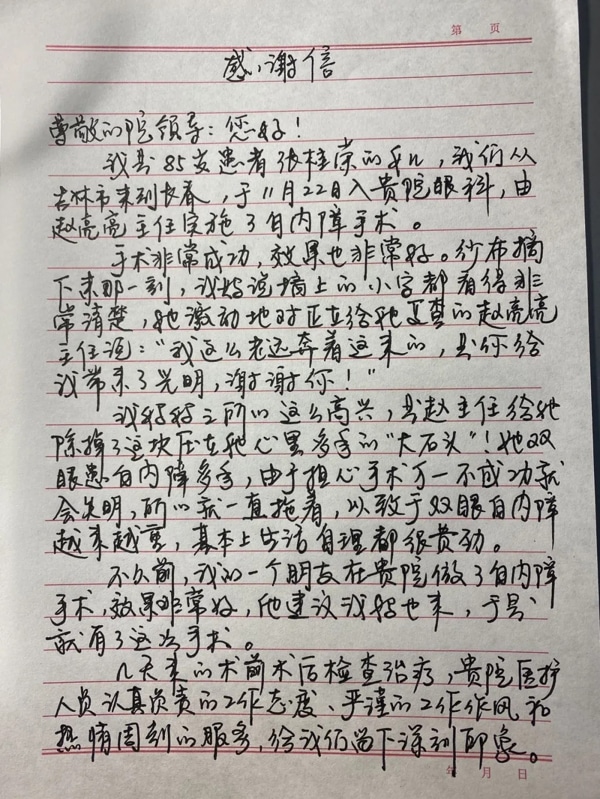 第 页
感谢信
尊敬的院领导：您好！
我是85岁患者张桂荣的女儿，我们从
吉林市来到长春，于11月22日入贵院眼科，由
赵亮亮主任实施了白内障手术。
手术非常成功，效果也非常好。纱布摘
下来那一刻，我妈说墙上的小字都看得非
常清楚，她激动地对正在给她复查的赵亮亮
主任说：“我这么老远奔着这来的，是你给
我带来了光明，谢谢你！”
我妈妈之所以这么高兴，是赵主任给她
除掉了这块压在她心里多年的“大石头”！她双
眼患白内障多年，由于担心手术万一不成功就
会失明，所以就一直拖着，以致于双眼白内障
越来越重，基本上生活自理都很费劲。
不久前，我的一个朋友在贵院做了白内障
手术，效果非常好，他建议我妈也来，于是
就有了这次手术。
几天来的术前术后检查治疗，贵院医护
人员认真负责的工作态度、严谨的工作作风和
热情周到的服务，给我们留下深刻印象。
年 月 日